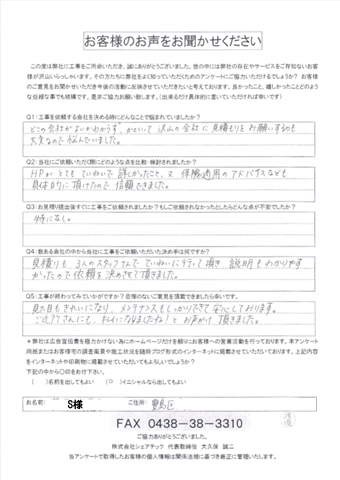 お客様のお声をお聞かせください
この度は弊社に工事をご用命いただき、誠にありがとうございました。世の中には弊社の存在やサービスをご存知ないお客
様が沢山いらっしゃいます。その方たちに弊社をよく知っていただくためのアンケートにご協力いただけるでしょうか？お客様
のご意見をお聞かせいただき今後の活動に反映させていただきたいと考えております。良かったこと、嬉しかったことどのよう
な些細な事でも結構です。是非ご協力お願い致します。（出来るだけ具体的に書いていただければ幸いです）
Q1：工事を依頼する会社を決める時にどんなことで悩まれていましたか？
どこの会社がよいかわからず、かといって沢山の会社に見積もりをお願いするのも
大変なので悩んでいました。
Q2：当社にご依頼いただく際にどのような点を比較・検討されましたか？
HPがとてもていねいで詳しかったこと、又 保険適用のアドバイスなども
具体的に頂けたので信頼できました。
Q3：お見積り提出後すぐに工事をご依頼されましたか？もしご依頼されなかったとしたらどんな点が不安でしたか？
特になし。
Q4：数ある会社の中から当社に工事をご依頼いただいた決め手は何ですか？
見積りも 3人のスタッフさんでていねいに行って頂き 説明もわかりやす
かったので依頼を決めさせて頂きました。
Q5：工事が終わってみていかがですか？忌憚のないご意見を頂戴できましたら幸いです。
見た目もきれいになり、メンテナンスもしっかりできて安心しております。
ご近所さんにも、キレイになりましたね！とお声がけ頂きました。
＊弊社は広告宣伝費を極力かけない為にホームページだけを頼りにお客様への営業活動を行っております。本アンケート
用紙またお客様宅の調査風景や施工状況を随時ブログ形式のインターネットに掲載させていただいております。上記内容
をインターネットや印刷物に掲載させていただいてもよろしいでしょうか？
下記の中から〇印をお付下さい。
（　）名前を出してもよい　（〇）イニシャルなら出してもよい
お名前： S様 ご住所： 豊島区
FAX 0438-38-3310
ご協力ありがとうございました。
株式会社シェアテック 代表取締役 大久保 誠二
当アンケートで取得したお客様の個人情報は関係法規に基づき厳正に管理いたします。